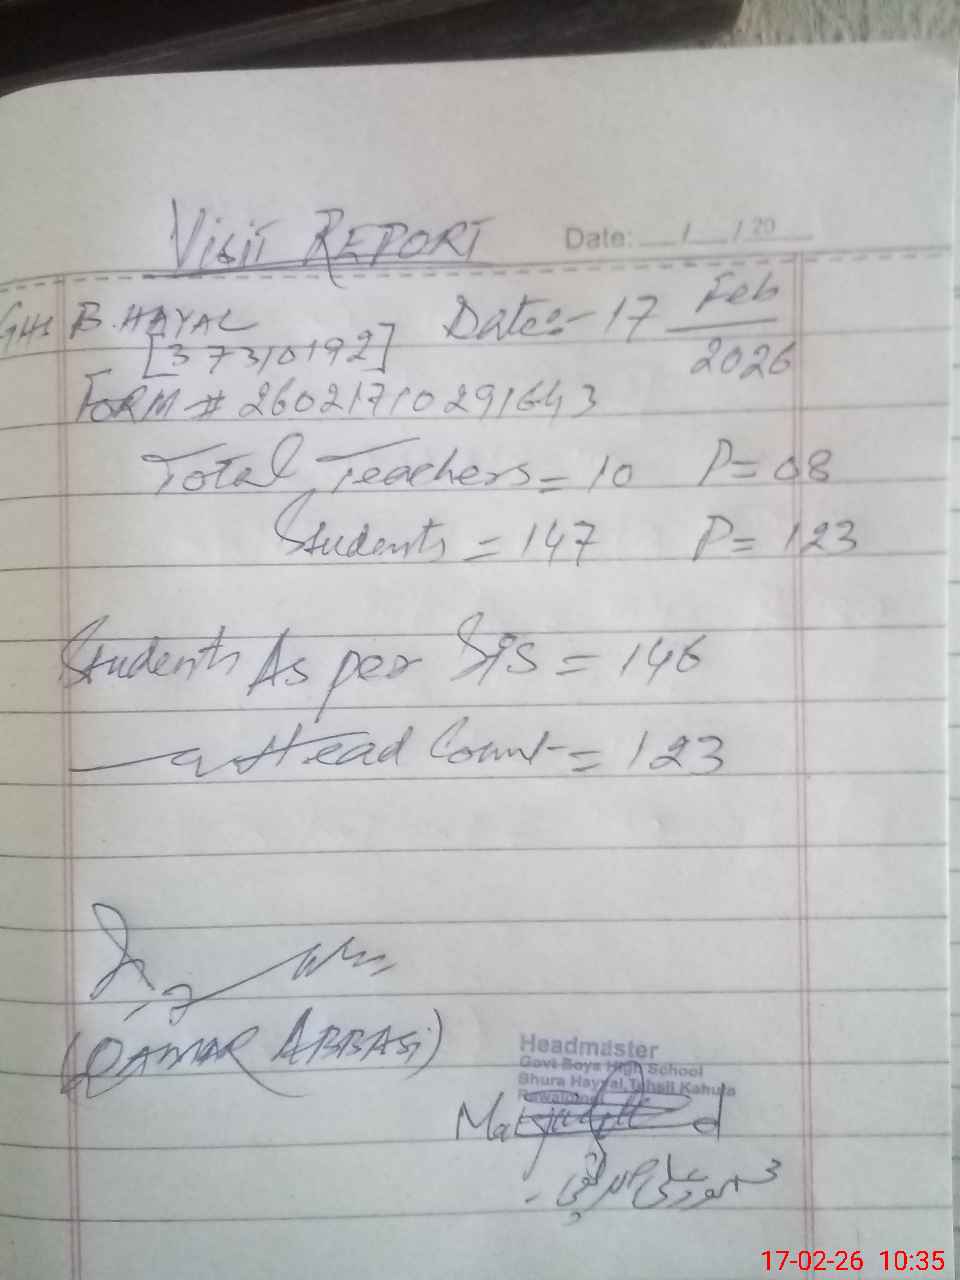 VISIT REPORT
Date: __/__/20__
GHS B. HAYAL Date:- 17 Feb
[37310192] 2026
FORM # 26021710291643
Total Teachers = 10 P= 08
Students = 147 P= 123
Students As per SIS = 146
Head Count = 123
(QAMAR ABBASI)
Headmaster
Govt Boys High School
Bhura Hayyal, Tehsil Kahuta
Rawalpindi
17-02-26 10:35